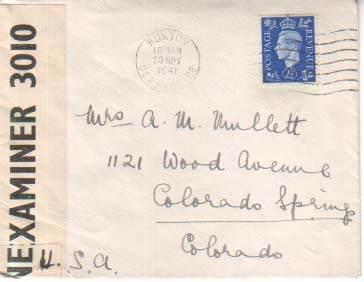 BUXTON
10 30 AM
20 NOV
1941
DERBYSHIRE
POSTAGE
REVENUE
2½
Mrs A. M. Mullett
1121 Wood Avenue
Colorado Springs
Colorado
U.S.A.
NEXAMINER 3010